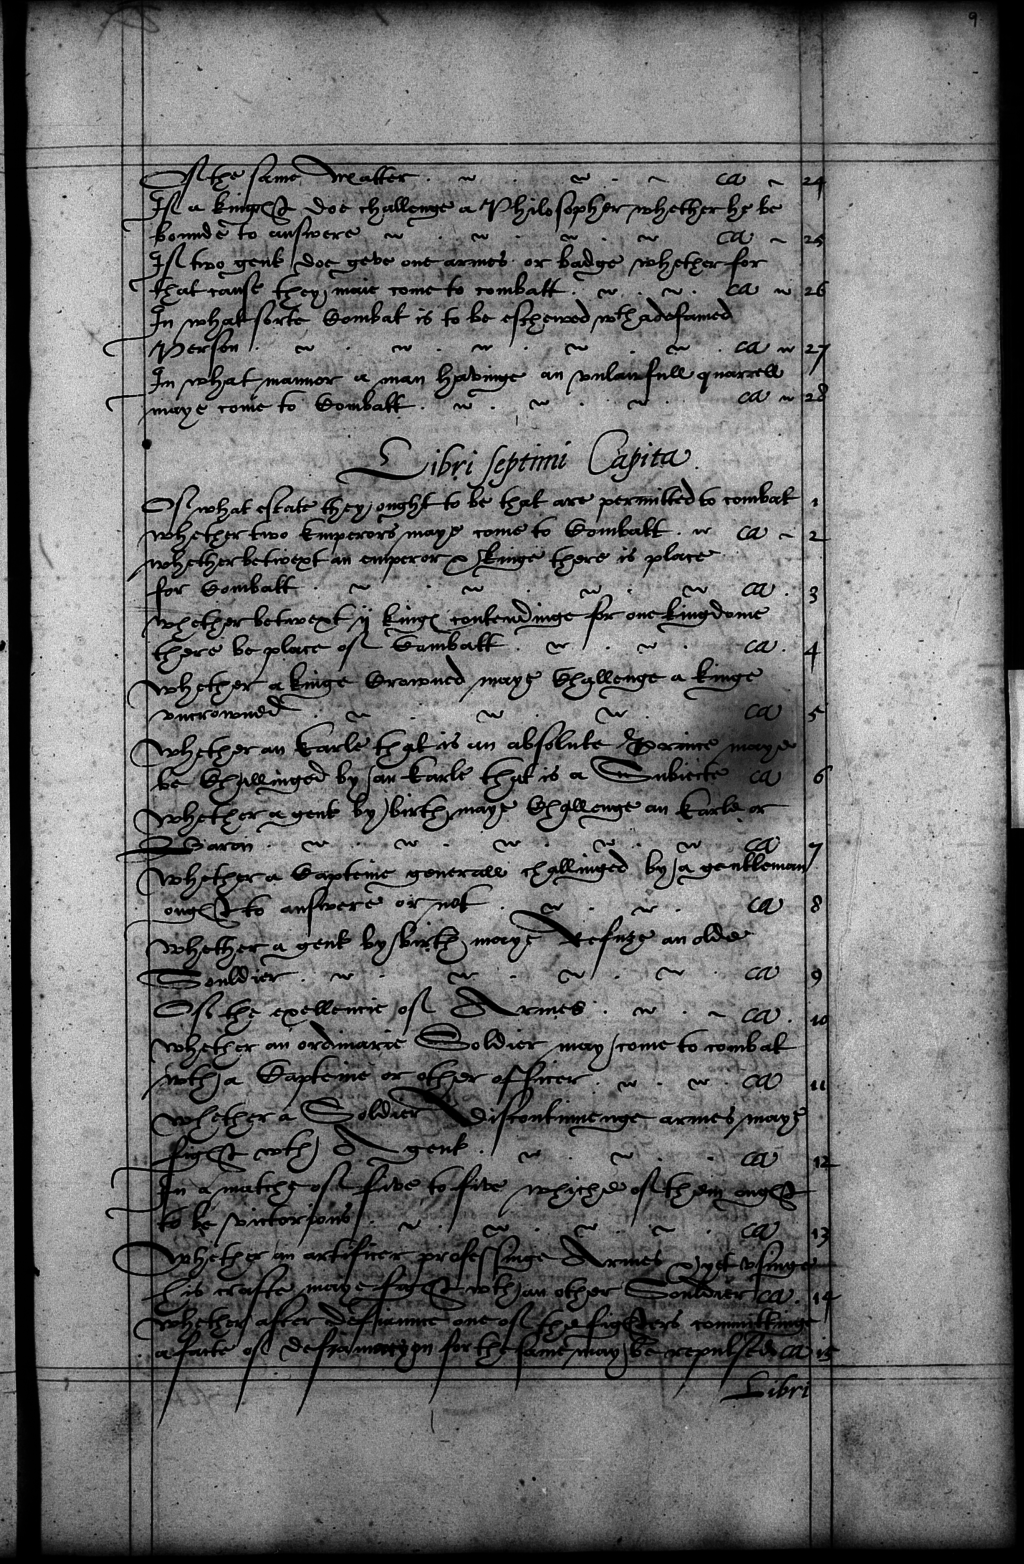 9
Of the same Matter ca 24
If a knight doe challenge a Philosopher whether he be
bounde to answere ca 25
If two gent doe geve one armes or badge whether for
that cause they maie come to combatt ca 26
In what sorte Combat is to be eschewed wth a defamed
Person ca 27
In what manner a man havinge an unlawfull quarrell
maye come to Combatt ca 28
Libri septimi Capita
Of what estate they ought to be that are permitted to combat 1
whether two Emperors maye come to Combatt ca 2
whether betwext an emperor & kinge there is place
for Combatt ca 3
whether betwext ij kings contendinge for one kingdome
there be place of Combatt ca 4
whether a kinge Crowned maye Challenge a kinge
uncrowned ca 5
whether an Earle that is an absolute Prince maye
be Challinged by an Earle that is a Subiecte ca 6
whether a gent by birth maye Challenge an Earle or
Baron ca 7
whether a Capteine generall challinged by a gentleman
ought to answere or not ca 8
whether a gent by birth maye Refuze an olde
Souldier ca 9
Of the exellencie of Armes ca 10
whether an ordinarie Soldier may come to combat
wth a Capteine or other officer ca 11
whether a Soldier discontinuenge armes maye
fight wth A gent ca 12
In a matche of five to five whiche of them ought
to be victorious ca 13
Whether an artificer professinge Armes & yet usinge
his crafte maye fight wth an other Souldier ca 14
whether after defiaunce one of the fighters committinge
a facte of defamacyon for the same may be repulsed ca 15
Libri